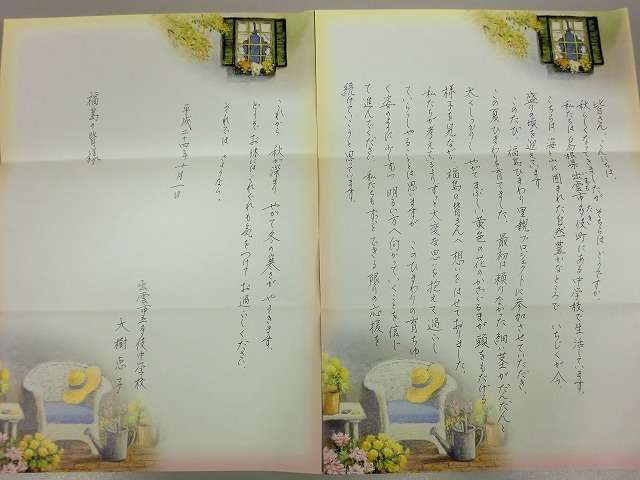 皆さん、こんにちは。
秋らしくなってきましたが、そちらはどうですか。
私たちは島根県出雲市多伎町にある中学校で生活しています。
こちらは海と山に囲まれた自然豊かなところで、いちじくが今
盛りの時を迎えています。
このたび、福島ひまわり里親プロジェクトに参加させていただき、
この夏ひまわりを育てました。最初は頼りなかった細い茎がだんだん
太くしっかりし、やがてまぶしい黄色の花のかざぐるまが頭をもたげる
様子を見ながら、福島の皆さんへ想いをはせておりました。
私たちが考えているよりずっと大変な思いを抱えて過ごし
ていらっしゃることとは思いますが、このひまわりの育ちゆ
く姿のままに少しずつ明るい方へ向かっていくことを信じ
て進んでください。私たちもずっとできる限りの応援を
続けていこうと思っています。
これから秋が深まり、やがて冬の寒さがやってきます。
どうぞ、お体にはくれぐれも気をつけてお過ごしください。
それでは、さようなら。
平成二十四年十一月一日
出雲市立多伎中学校
大樹恵子
福島の皆様